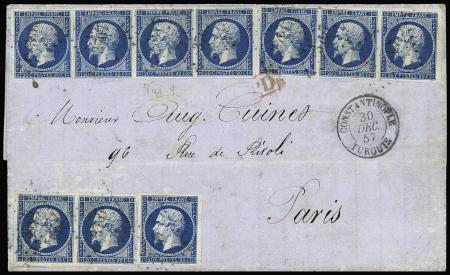 EMPIRE FRANC. EMPIRE FRANC. EMPIRE FRANC. EMPIRE FRANC. EMPIRE FRANC. EMPIRE FRANC. EMPIRE FRANC.
20 C POSTES 20 C 20 C POSTES 20 C 20 C POSTES 20 C 20 C POSTES 20 C 20 C POSTES 20 C 20 C POSTES 20 C 20 C POSTES 20 C
PD
Monsieur Aug. Tuines
96 Rue de Rivoli
Paris
CONSTANTINOPLE
30
DEC.
57
TURQUIE
EMPIRE FRANC. EMPIRE FRANC. EMPIRE FRANC.
20 C POSTES 20 C 20 C POSTES 20 C 20 C POSTES 20 C